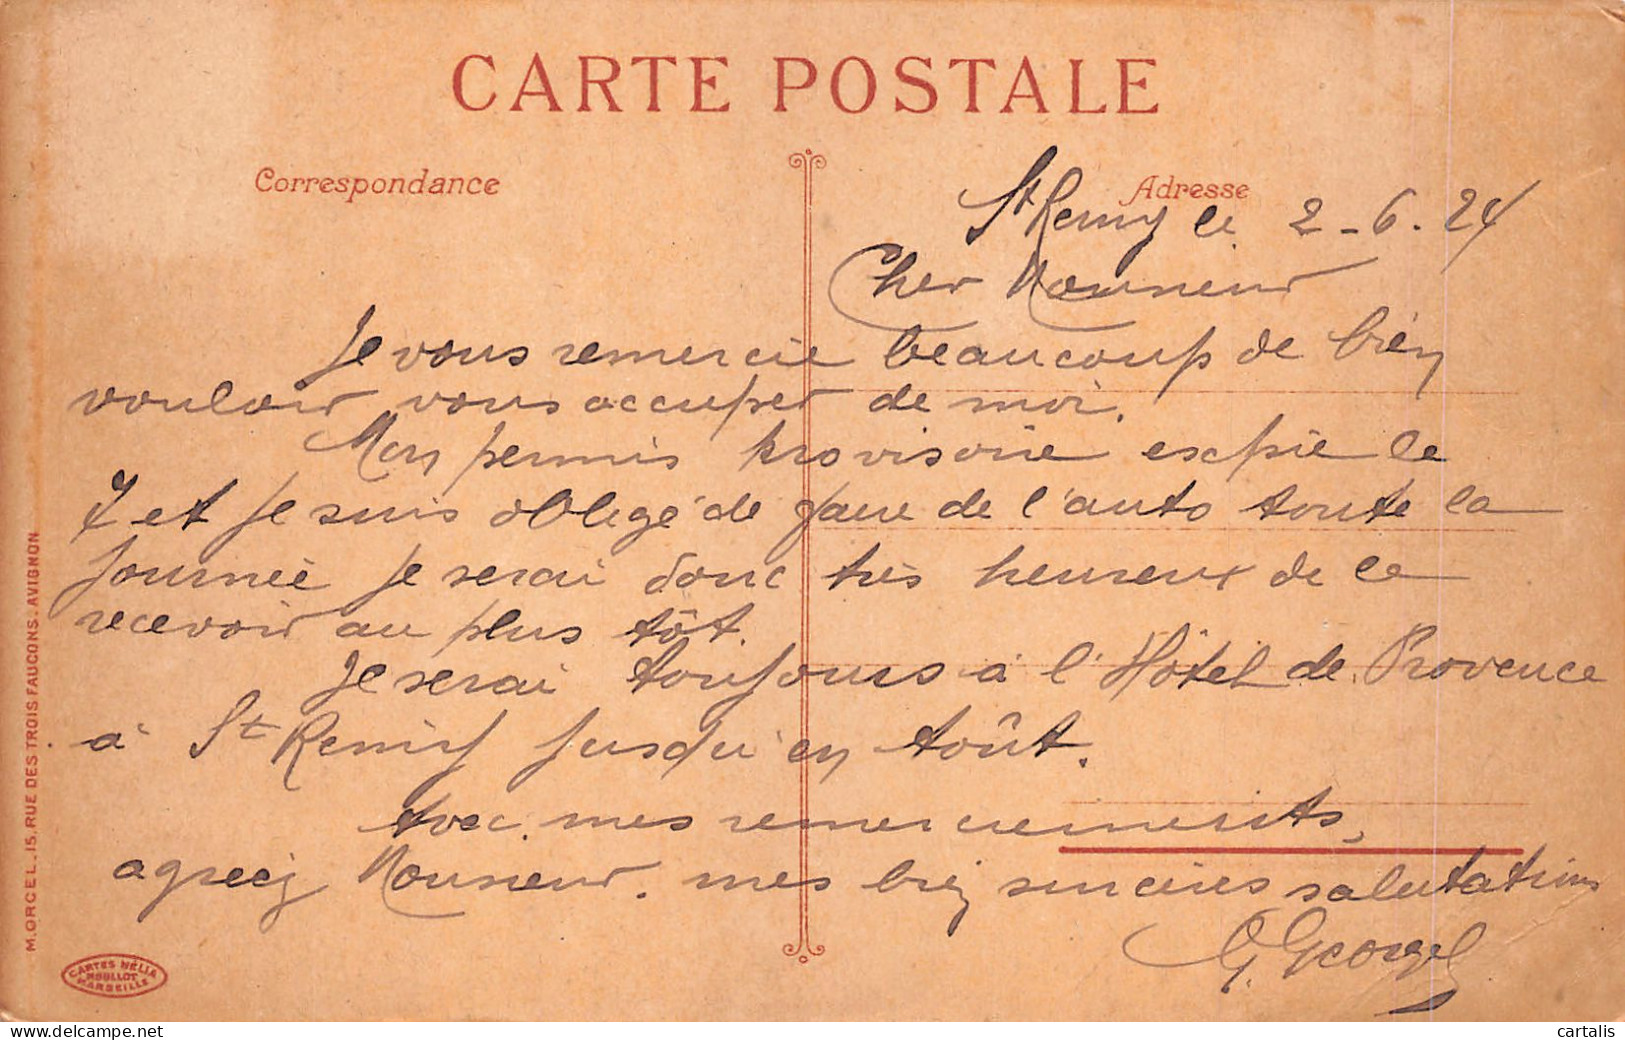 CARTE POSTALE
Correspondance
Adresse
St Remy le 2-6.24
Cher Monsieur
Je vous remercie beaucoup de bien
vouloir vous occuper de moi.
Mon permis provisoire expire le
7 et je suis obligé de faire de l'auto toute la
journée je serai donc très heureux de le
recevoir au plus tôt.
Je serai toujours à l'Hôtel de Provence
à St Remy jusqu'en Août.
Avec mes remerciements,
agréez Monsieur. mes bien sincères salutations
G. Georgel
M.ORCEL.15.RUE DES TROIS FAUCONS.AVIGNON
CARTES HÉLIA
NOULLOT
MARSEILLE
cartalis